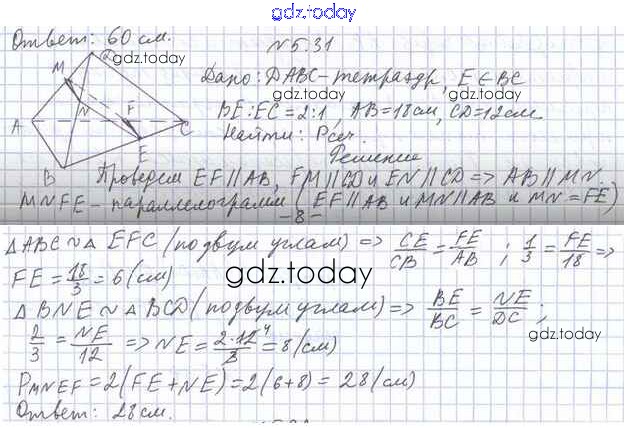 gdz.today
Ответ: 60 см.
№5.31
gdz.today
Дано: DABC-тетраэдр, E∈BC
BE:EC=2:1, AB=18см, CD=12см.
Найти: Pсеч.
Решение
D
M
N
F
A
C
E
B
gdz.today
gdz.today
Проведем EF||AB, FM||CD и EN||CD => AB||MN.
MNFE-параллелограмм (EF||AB и MN||AB и MN=FE)
-8-
△ABC ~ △ EFC (по двум углам) => CE/CB = FE/AB ; 1/3 = FE/18 =>
FE = 18/3 = 6 (см)
gdz.today
△BNE ~ △BCD (по двум углам) => BE/BC = NE/DC ;
2/3 = NE/12 => NE = 2·12⁴/3 = 8 (см)
gdz.today
PMNEF = 2(FE+NE) = 2(6+8) = 28 (см)
Ответ: 28см.
gdz.today